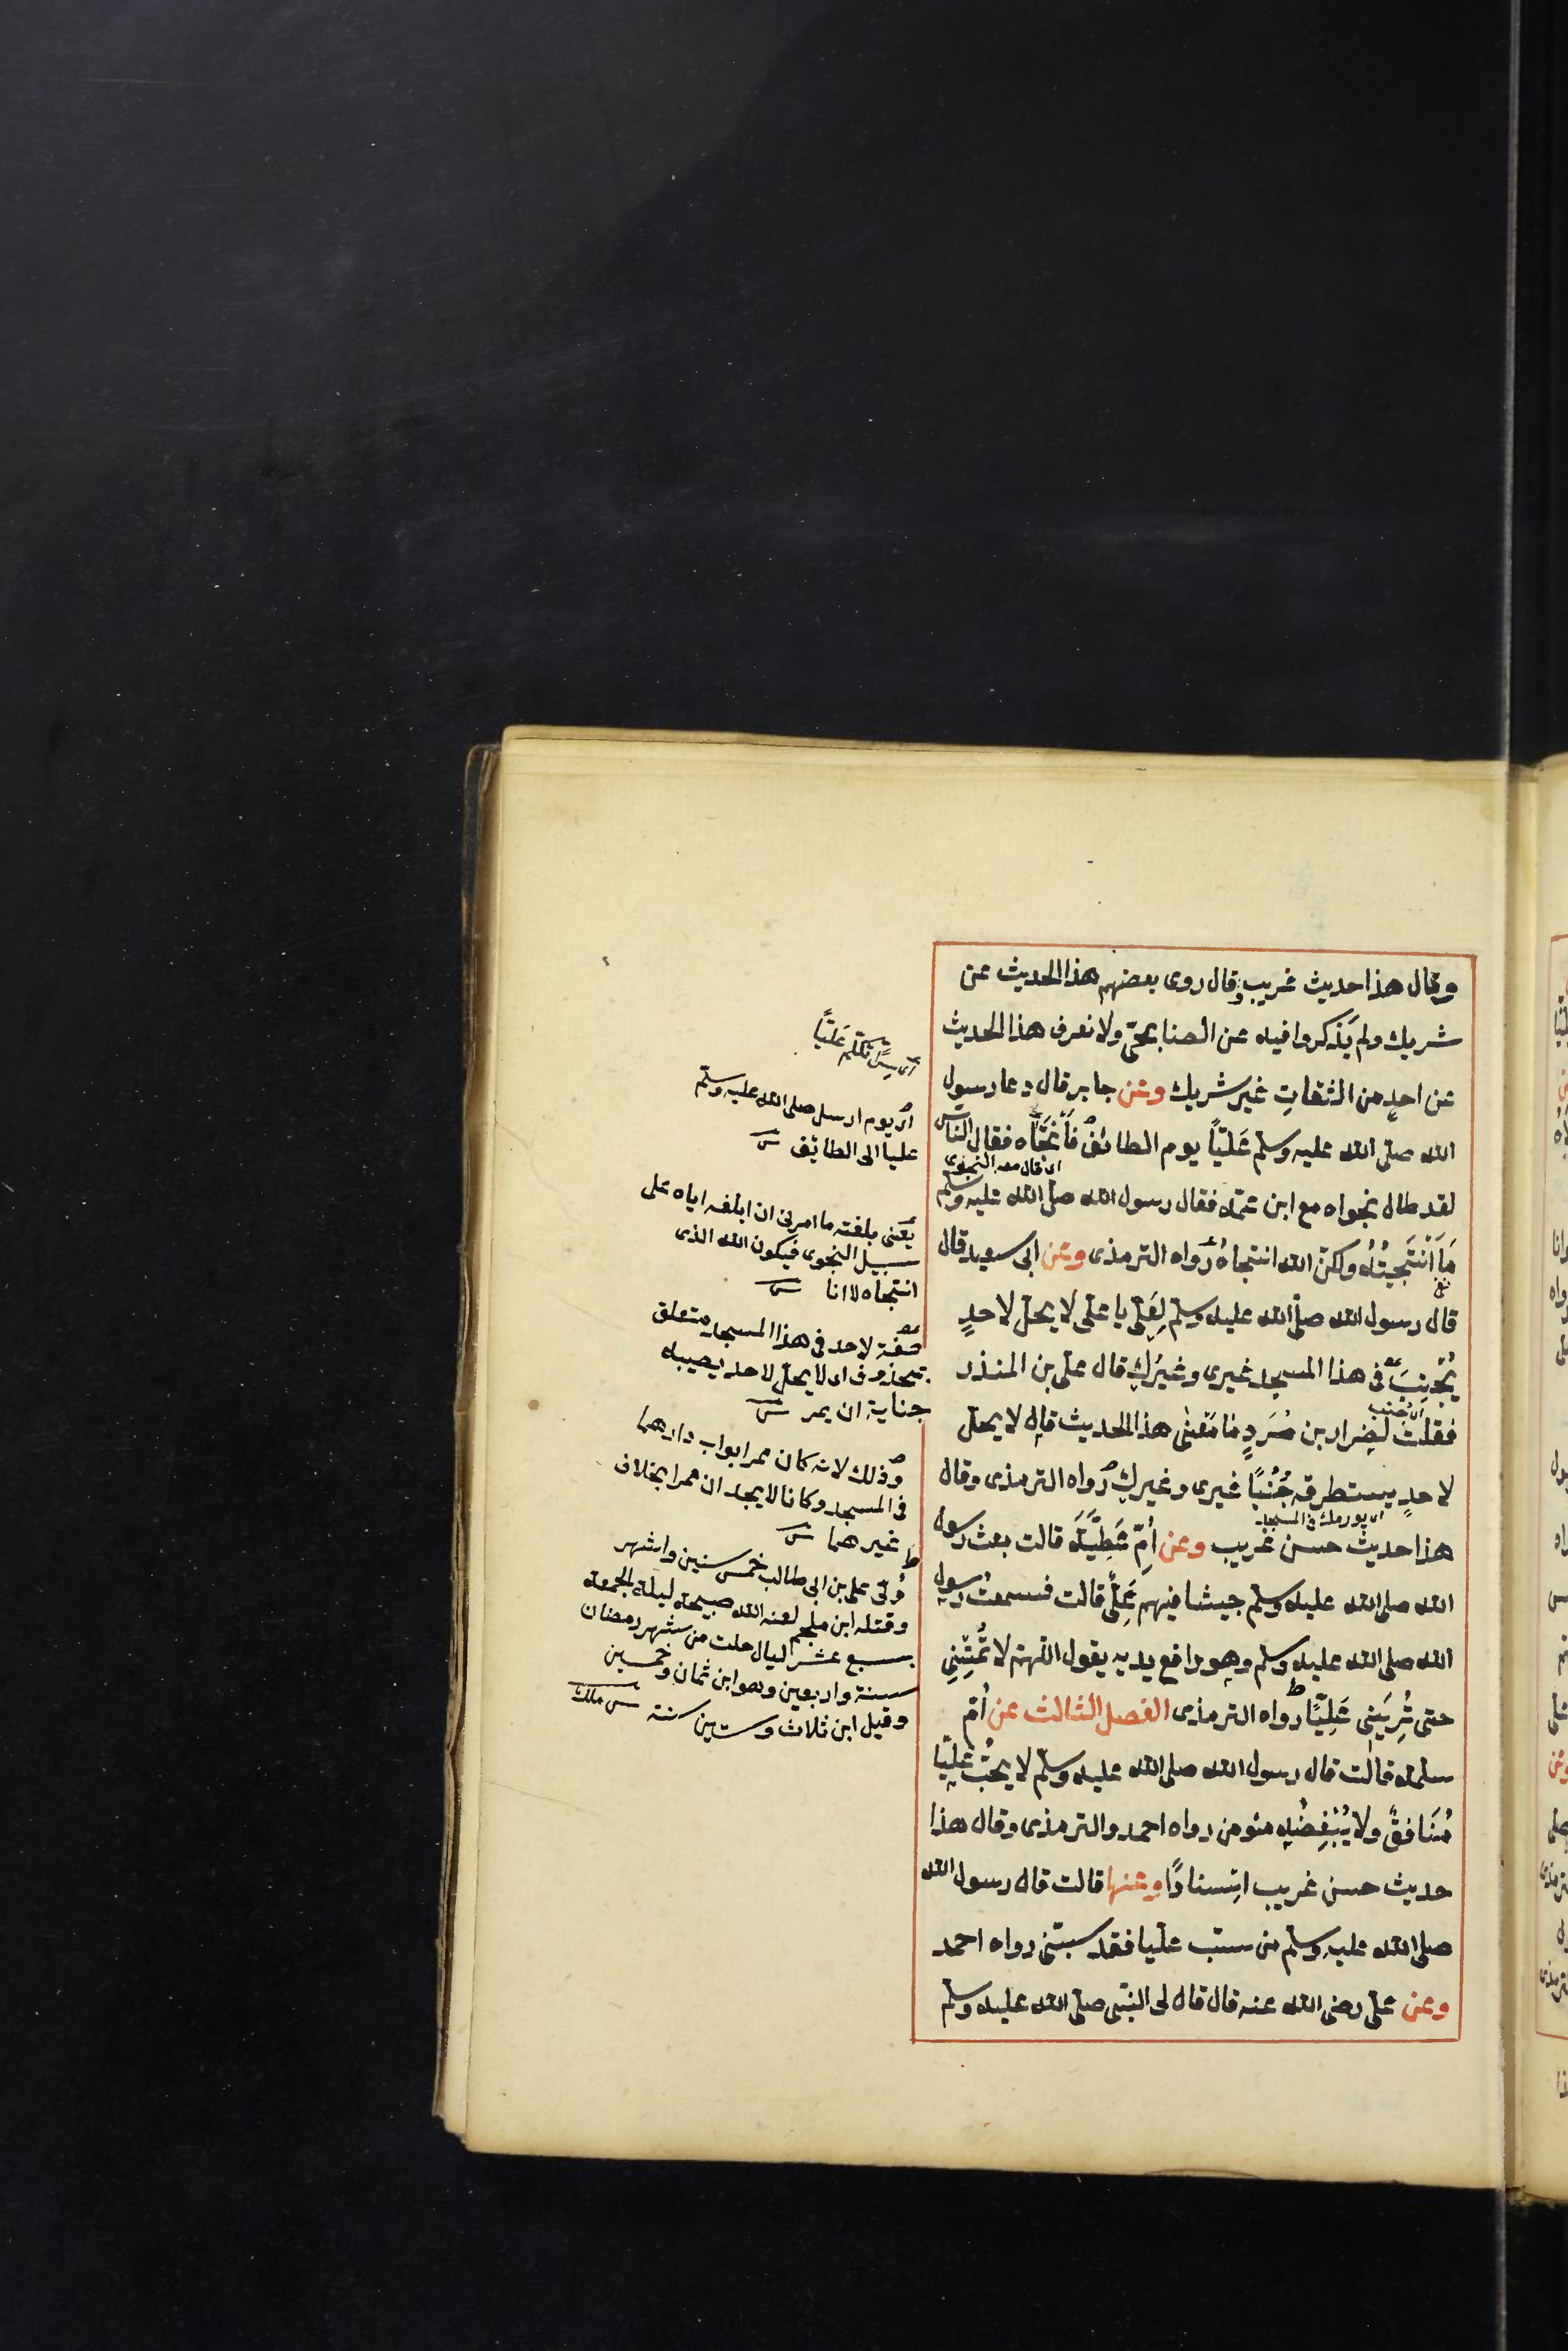 وقال هذا حديث غريب وقال روى بعضهم هذا الحديث عن
شريك ولم يَذكروا فيه عن الصنابحىّ ولا نعرف هذا الحديث
عن احدٍ من الثقاتِ غير شريك وعن جابر قال دعا رسول
الله صلى الله عليه وسلم عَليّاً يوم الطائف فَانْتجَاه فقال الناس
اى قال معه النجوى
لقد طال نجواه مع ابن عمّه فقال رسول الله صلى الله عليه وسلم
مَا اَنْتَجيتُهُ ولكنّ الله انتجاهُ رواه الترمذى وعن ابى سعيد قال
قال رسول الله صلّى الله عليه وسلم لِعَلِىّ يا على لا يحلّ لاحدٍ
يُجْنِبَ فى هذا المسجد غيرى وغيرُكِ قال على بن المنذر
اى جنب
فقلت لضِرار بن صُرَدٍ مَا مَعنٰى هذا الحديث قال لا يحلّ
لاحدٍ يستطرقه جُنُبًا غيرى وغيركِ رواه الترمذى وقال
فى المسجد
هذا حديث حسن غريب وعن أمّ عَطِيَّةَ قالت بعث رسول
الله صلى الله عليه وسلم جيشا فيهم عَلِىٌّ قالت فسمعتُ رسول
الله صلى الله عليه وسلم وهو رافع يديه يقول اللهمّ لا تُمِتْنِى
حتى تُرِيَنِى عَلِيًّا رواه الترمذى الفصل الثالث عن أمّ
سلمة قالت قال رسول الله صلى الله عليه وسلم لا يحُبُّ عَلِيّا
مُنَافقٌ ولا يُبْغِضُه مئومن رواه احمد والترمذى وقال هذا
حديث حسن غريب اسنادًا وعنها قالت قال رسول الله
صلى الله عليه وسلم من سبّ عليا فقد سبّنى رواه احمد
وعن علىّ رضى الله عنه قال قال لى النبّى صلى الله عليه وسلم
تكلم عَليّاً
اى يوم ارسل صلى الله عليه وسلم
عليا الى الطايف
يعنى بلغته ما امرنى ان ابلغه اياه على
سبيل النجوى فيكون الله الذى
انتجاه لا انا
صفة لاحد فى هذا المسجد متعلق
بمحذوف اى لا يحل لاحد يصيبه
جناية ان يمر
وذلك لانه كان ممر ابواب دارهما
فى المسجد وكانا لا يجد ان ممرا بخلاف
غيرهما
وُلّى على بن ابى طالب خمس سنين واشهر
وقتله ابن ملجم لعنه الله صبيحة ليلة الجمعة
بسبع عشر ليال خلت من شهر رمضان
سنة واربعين وهو ابن ثمان وخمسين
وقيل ابن ثلاث وستين سنة